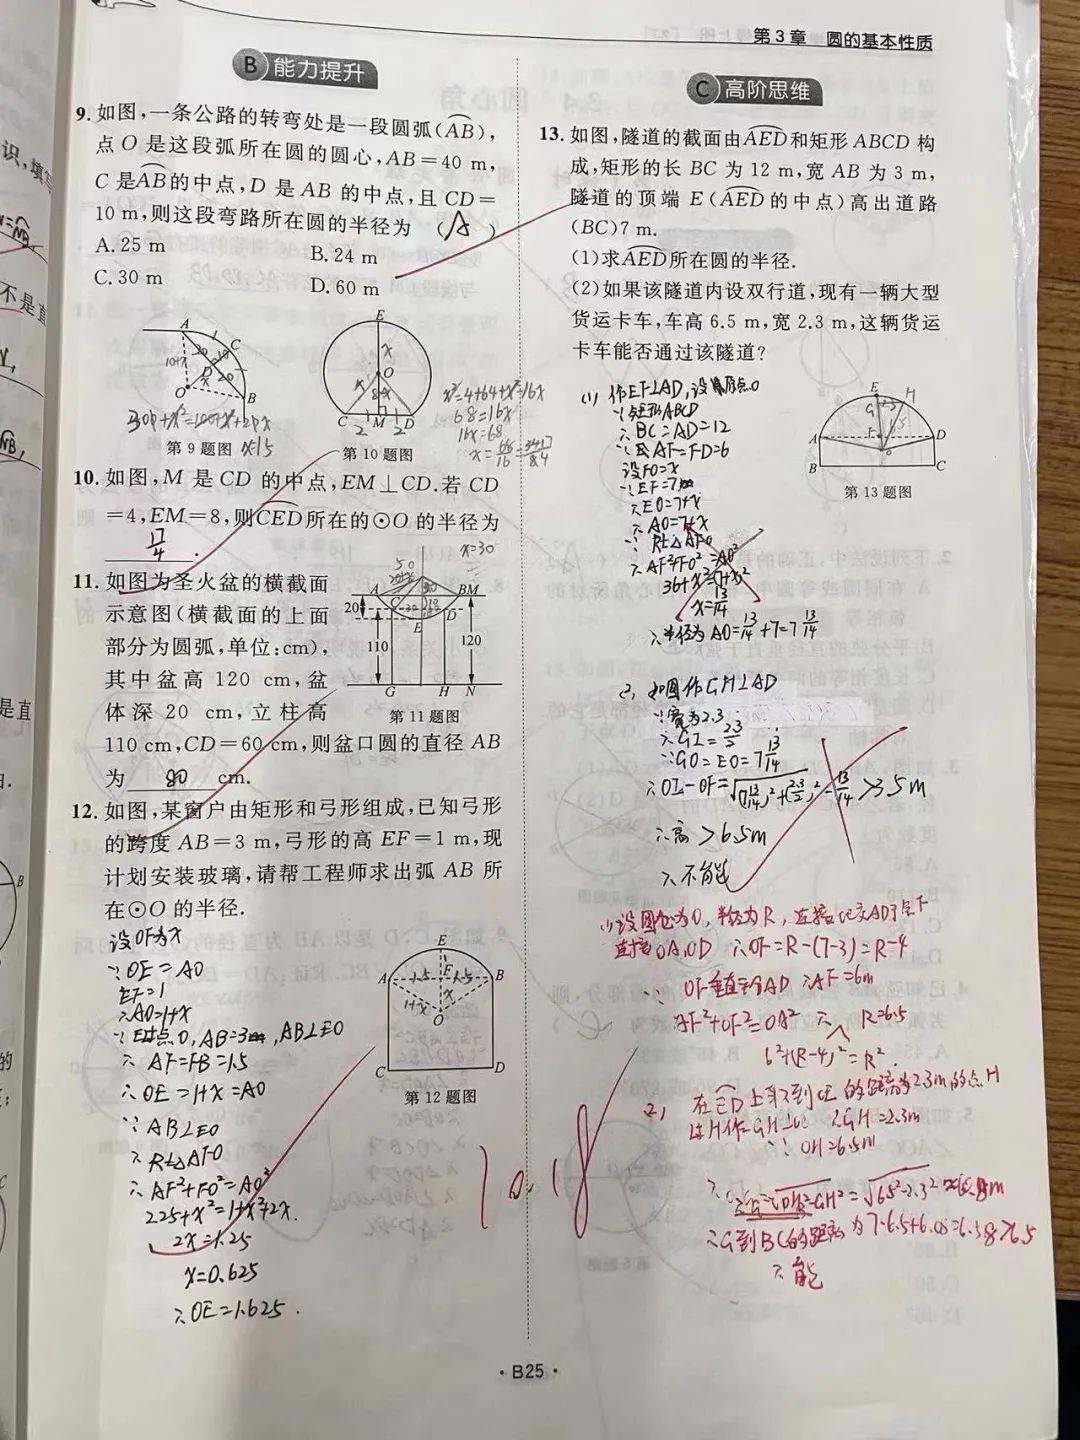 第3章 圆的基本性质
B 能力提升
9. 如图,一条公路的转弯处是一段圆弧(AB),
点 O 是这段弧所在圆的圆心,AB=40 m,
C 是AB的中点,D 是 AB 的中点,且 CD=
10 m,则这段弯路所在圆的半径为 (A)
A. 25 m B. 24 m
C. 30 m D. 60 m
第 9 题图
x²=4+64+x²-16x
68=16x
16x=68
第 10 题图
10. 如图,M 是 CD 的中点,EM⊥CD.若 CD
=4,EM=8,则CED所在的⊙O 的半径为
17/4.
x=30
11. 如图为圣火盆的横截面
示意图(横截面的上面
部分为圆弧,单位:cm),
其中盆高 120 cm,盆
体深 20 cm,立柱高
110 cm,CD=60 cm,则盆口圆的直径 AB
为 80 cm.
20
110
120
第 11 题图
12. 如图,某窗户由矩形和弓形组成,已知弓形
的跨度 AB=3 m,弓形的高 EF=1 m,现
计划安装玻璃,请帮工程师求出弧 AB 所
在⊙O 的半径.
设OF为x
∵OE=AO
EF=1
∴AO=1+x
∴AF=FB=1.5
∴OE=1+x=AO
∵AB⊥EO
∴Rt△AFO
∴AF²+FO²=AO²
2.25+x²=1+x²+2x
2x=1.25
x=0.625
∴OE=1.625.
第 12 题图
C 高阶思维
13. 如图,隧道的截面由AED和矩形 ABCD 构
成,矩形的长 BC 为 12 m,宽 AB 为 3 m,
隧道的顶端 E (AED 的中点)高出道路
(BC)7 m.
(1)求AED所在圆的半径.
(2)如果该隧道内设双行道,现有一辆大型
货运卡车,车高 6.5 m,宽 2.3 m,这辆货运
卡车能否通过该隧道?
∵矩形ABCD
∴BC=AD=12
AF=FD=6
设FO=x
∵EF=7
∴EO=7+x
∴AO=7+x
∵Rt△AFO
∴AF²+FO²=AO²
x=13/14
∴半径为AO=13/14+7=7 13/14
第 13 题图
如图作GH⊥AD
∵宽为2.3
∵GO=EO=7 13/14
∴高>6.5m
∴不能
(1)设圆心为O,半径为R,连接OE交AD于点F
连接OA,OD ∴OF=R-(7-3)=R-4
OF垂直平分AD ∴AF=6m
AF²+OF²=OA² ∴R=6.5
6²+(R-4)²=R²
在ED上取到OE的距离为2.3m的点H
过H作GH⊥OE ∴GH=2.3m
∵OH=6.5m
∴能
· B25 ·